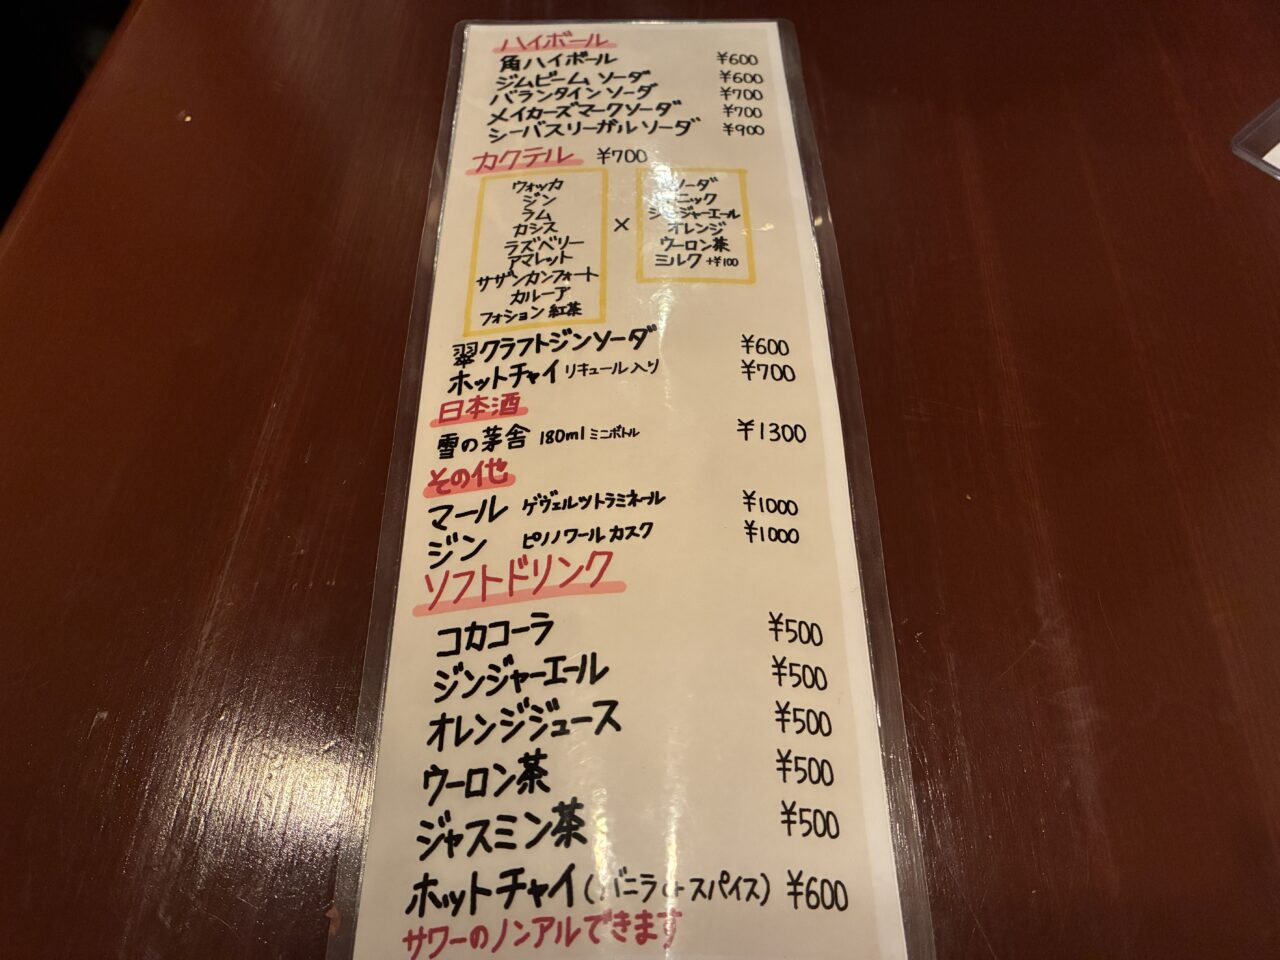 ハイボール
角ハイボール ¥600
ジムビーム ソーダ ¥600
バランタインソーダ ¥700
メイカーズマークソーダ ¥700
シーバスリーガルソーダ ¥900
カクテル ¥700
ウォッカ
ジン
ラム
カシス
ラズベリー
アマレット
サザンカンフォート
カルーア
フォション紅茶
×
ソーダ
ニック
ジンジャーエール
オレンジ
ウーロン茶
ミルク +¥100
翠クラフトジンソーダ ¥600
ホットチャイ リキュール入り ¥700
日本酒
雪の茅舎 180ml ミニボトル ¥1300
その他
マール ゲヴェルツトラミネール ¥1000
ジン ピノノワールカスク ¥1000
ソフトドリンク
コカコーラ ¥500
ジンジャーエール ¥500
オレンジジュース ¥500
ウーロン茶 ¥500
ジャスミン茶 ¥500
ホットチャイ (バニラ or スパイス) ¥600
サワーのノンアルできます